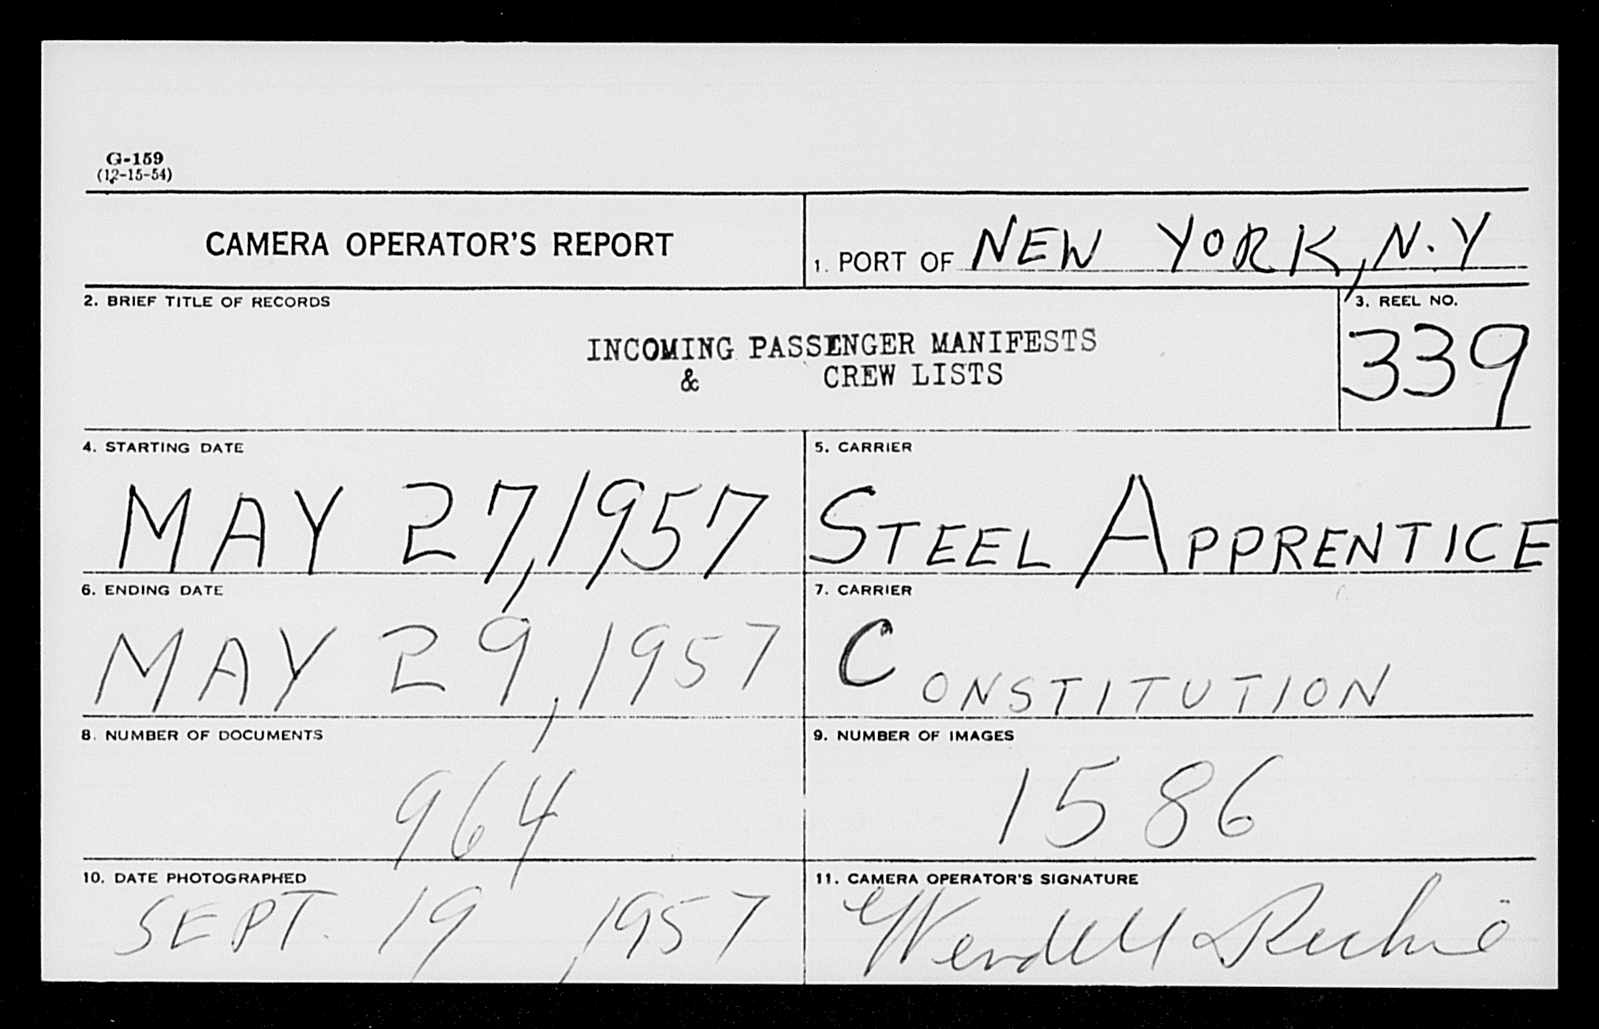 G-159
(12-15-54)
CAMERA OPERATOR'S REPORT
1. PORT OF NEW YORK, N.Y
2. BRIEF TITLE OF RECORDS
INCOMING PASSENGER MANIFESTS
& CREW LISTS
3. REEL NO.
339
4. STARTING DATE
MAY 27, 1957
5. CARRIER
STEEL APPRENTICE
6. ENDING DATE
MAY 29, 1957
7. CARRIER
CONSTITUTION
8. NUMBER OF DOCUMENTS
964
9. NUMBER OF IMAGES
1586
10. DATE PHOTOGRAPHED
SEPT. 19, 1957
11. CAMERA OPERATOR'S SIGNATURE
Wendell